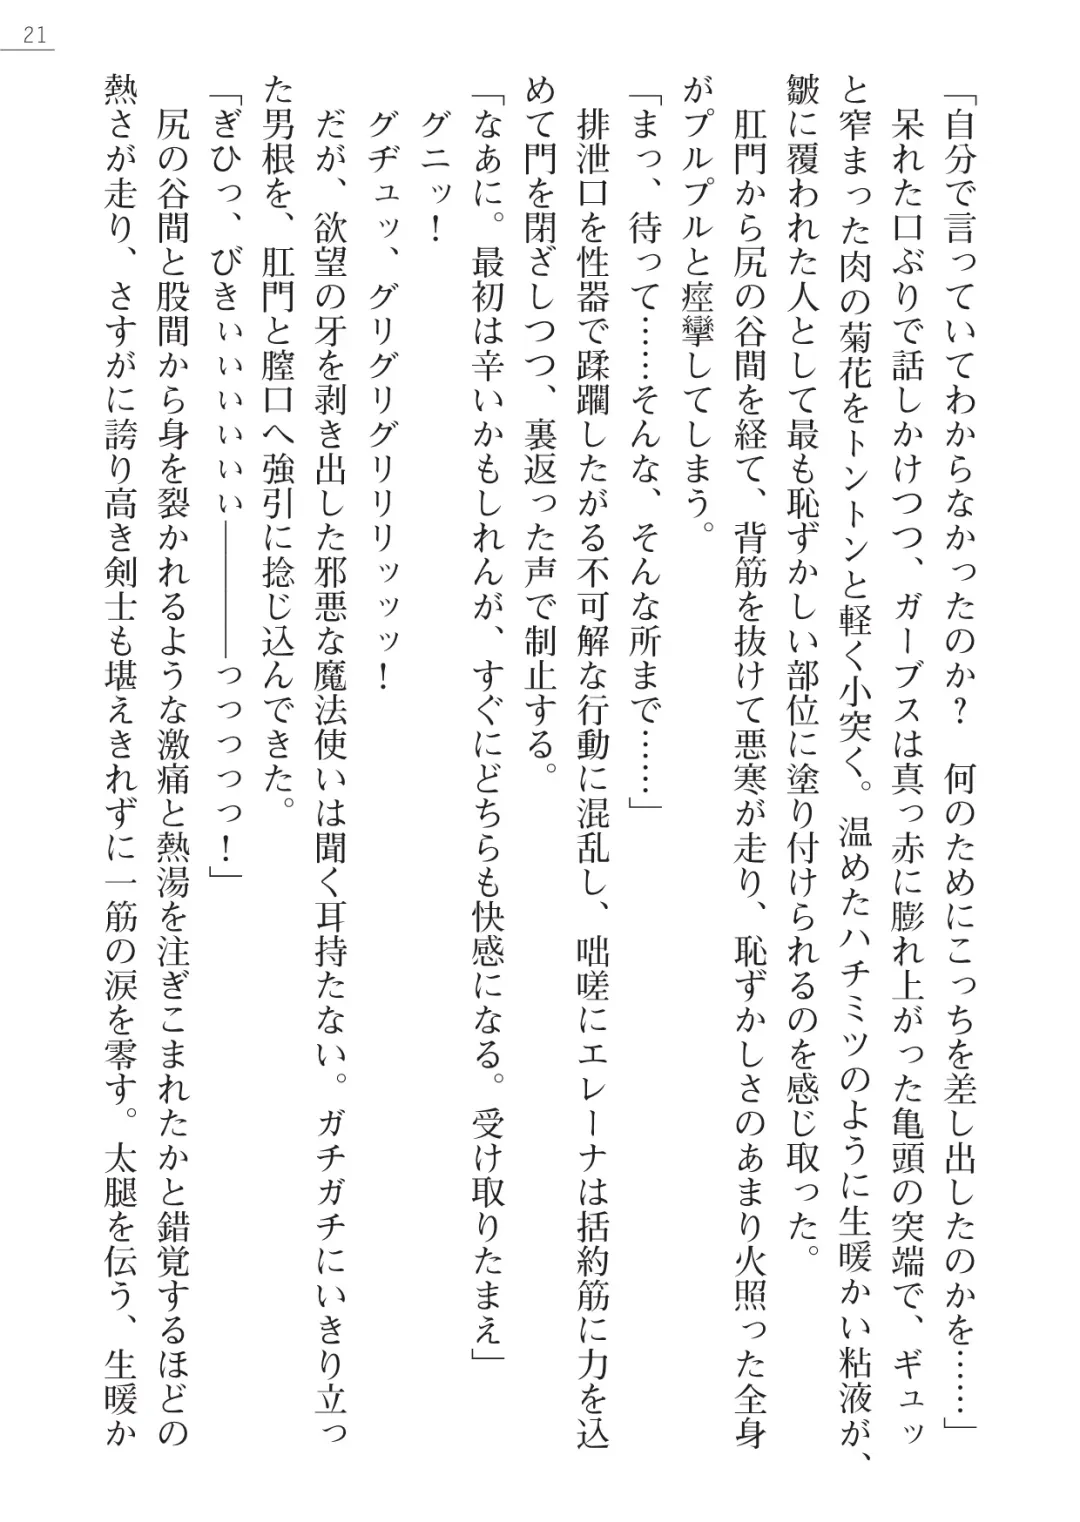 21
「自分で言っていてわからなかったのか？　何のためにこっちを差し出したのかを……」
　呆れた口ぶりで話しかけつつ、ガーブスは真っ赤に膨れ上がった亀頭の突端で、ギュッ
と窄まった肉の菊花をトントンと軽く小突く。温めたハチミツのように生暖かい粘液が、
皺に覆われた人として最も恥ずかしい部位に塗り付けられるのを感じ取った。
　肛門から尻の谷間を経て、背筋を抜けて悪寒が走り、恥ずかしさのあまり火照った全身
がプルプルと痙攣してしまう。
「まっ、待って……そんな、そんな所まで……」
　排泄口を性器で蹂躙したがる不可解な行動に混乱し、咄嗟にエレーナは括約筋に力を込
めて門を閉ざしつつ、裏返った声で制止する。
「なあに。最初は辛いかもしれんが、すぐにどちらも快感になる。受け取りたまえ」
　グニッ！
　グヂュッ、グリグリグリリリッッッ！
　だが、欲望の牙を剥き出した邪悪な魔法使いは聞く耳持たない。ガチガチにいきり立っ
た男根を、肛門と膣口へ強引に捻じ込んできた。
「ぎひっ、びきぃぃぃぃぃぃ――――っっっっっ！」
　尻の谷間と股間から身を裂かれるような激痛と熱湯を注ぎこまれたかと錯覚するほどの
熱さが走り、さすがに誇り高き剣士も堪えきれずに一筋の涙を零す。太腿を伝う、生暖か